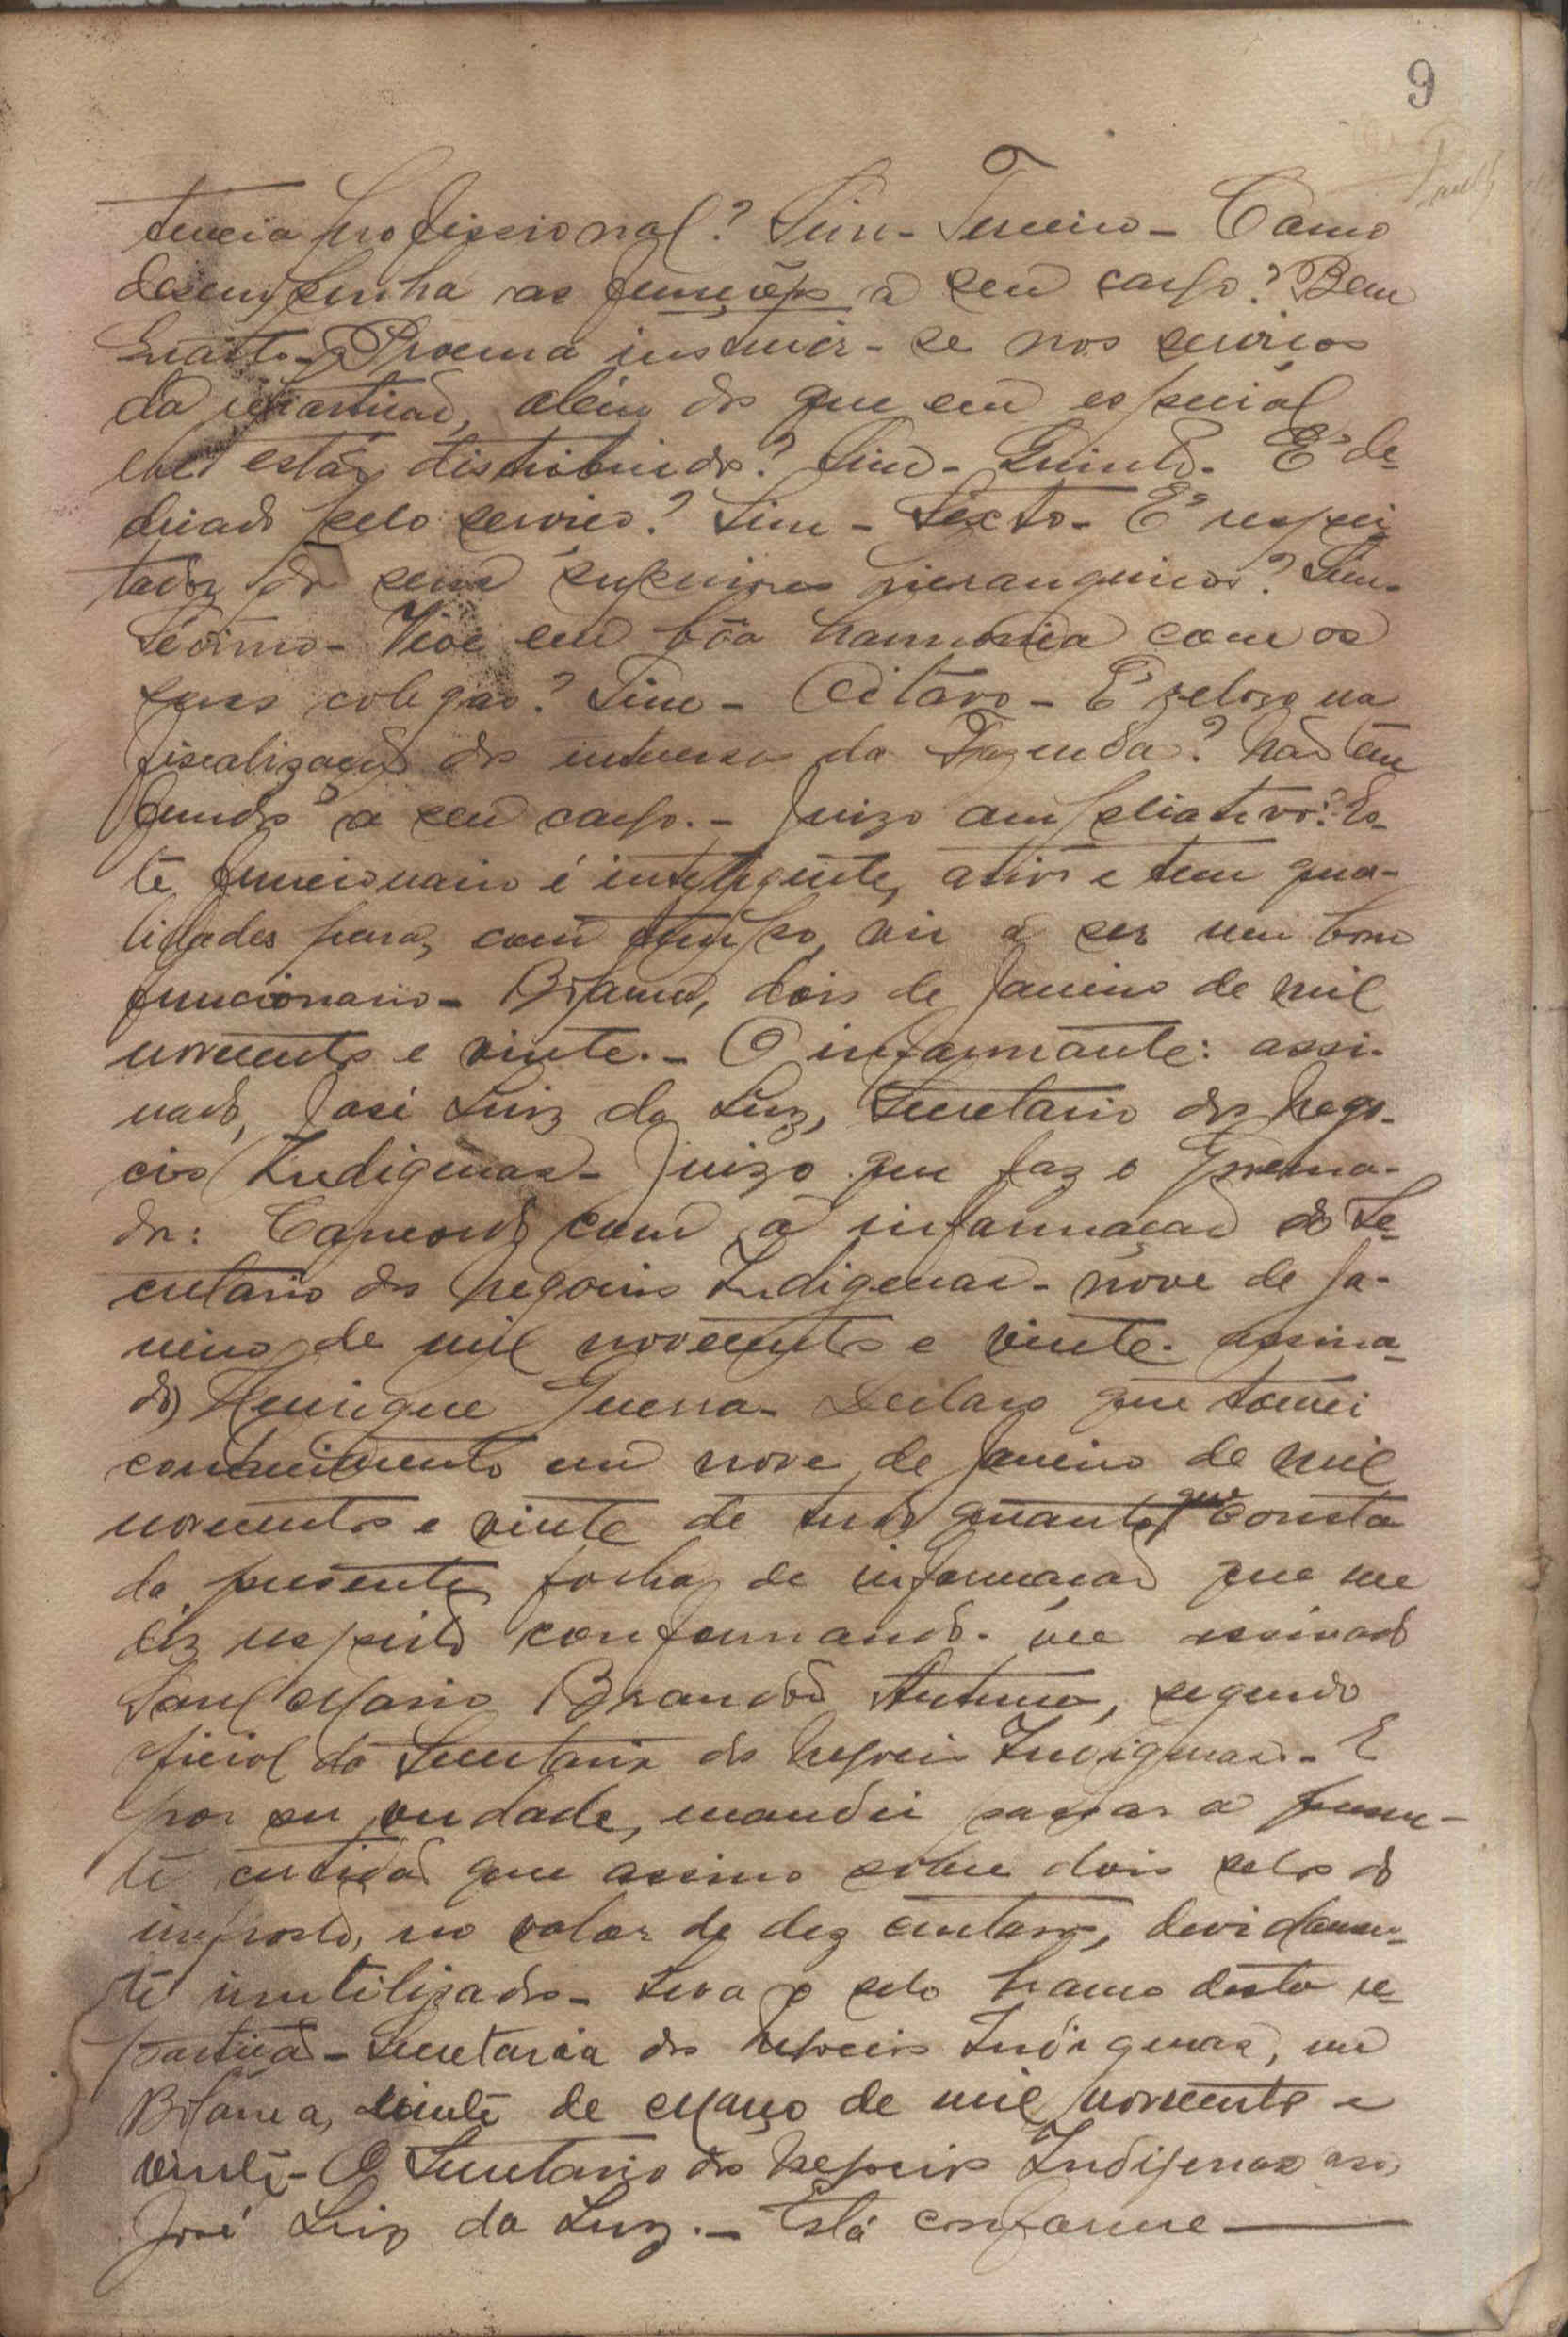 9
tencia profissional? Sim - Terceiro - Como
desempenha as funções a seu cargo? Bem
Quarto - Procura instruir-se nos serviços
da repartição, além do que em especial
lhe está distribuido? Sim - Quinto - É de-
dicado pelo serviço? Sim - Sexto - É respei
tador de seus superiores hierarquicos? Sim -
Sétimo - Vive em bôa harmonia com os
seus colegas? Sim - Oitavo - É zeloso na
fiscalização dos interesses da Fazenda? Não tem
fundos a seu cargo. - Juizo ampliativo: Es-
te funcionario é inteligente, ativo e tem qua-
lidades para, com tempo, vir a ser um bom
funcionario - Bolama, dois de Janeiro de mil
novecentos e vinte. - O informante: assi-
nado, José Luiz da Luz, Secretario dos Nego-
cios Indigenas - Juizo que faz o Governa-
dor: Concordo com a informação do Se-
cretario dos Negocios Indigenas - nove de Ja-
neiro de mil novecentos e vinte - assina-
do) Henrique Guerra - Declaro que tomei
conhecimento em nove de Janeiro de mil
novecentos e vinte de tudo quanto que consta
da presente folha de informação que me
diz respeito conformando-me assinado
Raul Mario Brandão Antunes, segundo
oficial da Secretaria dos Negocios Indigenas - E
por ser verdade, mandei passar a presen-
te certidão que assino sobre dois selos do
imposto, no valor de dez centavos, devidamen-
te inutilizados - Leva o selo branco desta re-
partição - Secretaria dos Negocios Indigenas, em
Bolama, vinte de Março de mil novecentos e
vinte - O Secretario dos Negocios Indigenas ass)
José Luiz da Luz. - Está conforme